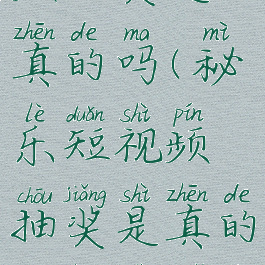 zhēn de ma mì
真的吗(秘
lè duǎn shì pín
乐短视频
chōu jiǎng shì zhēn de
抽奖是真的